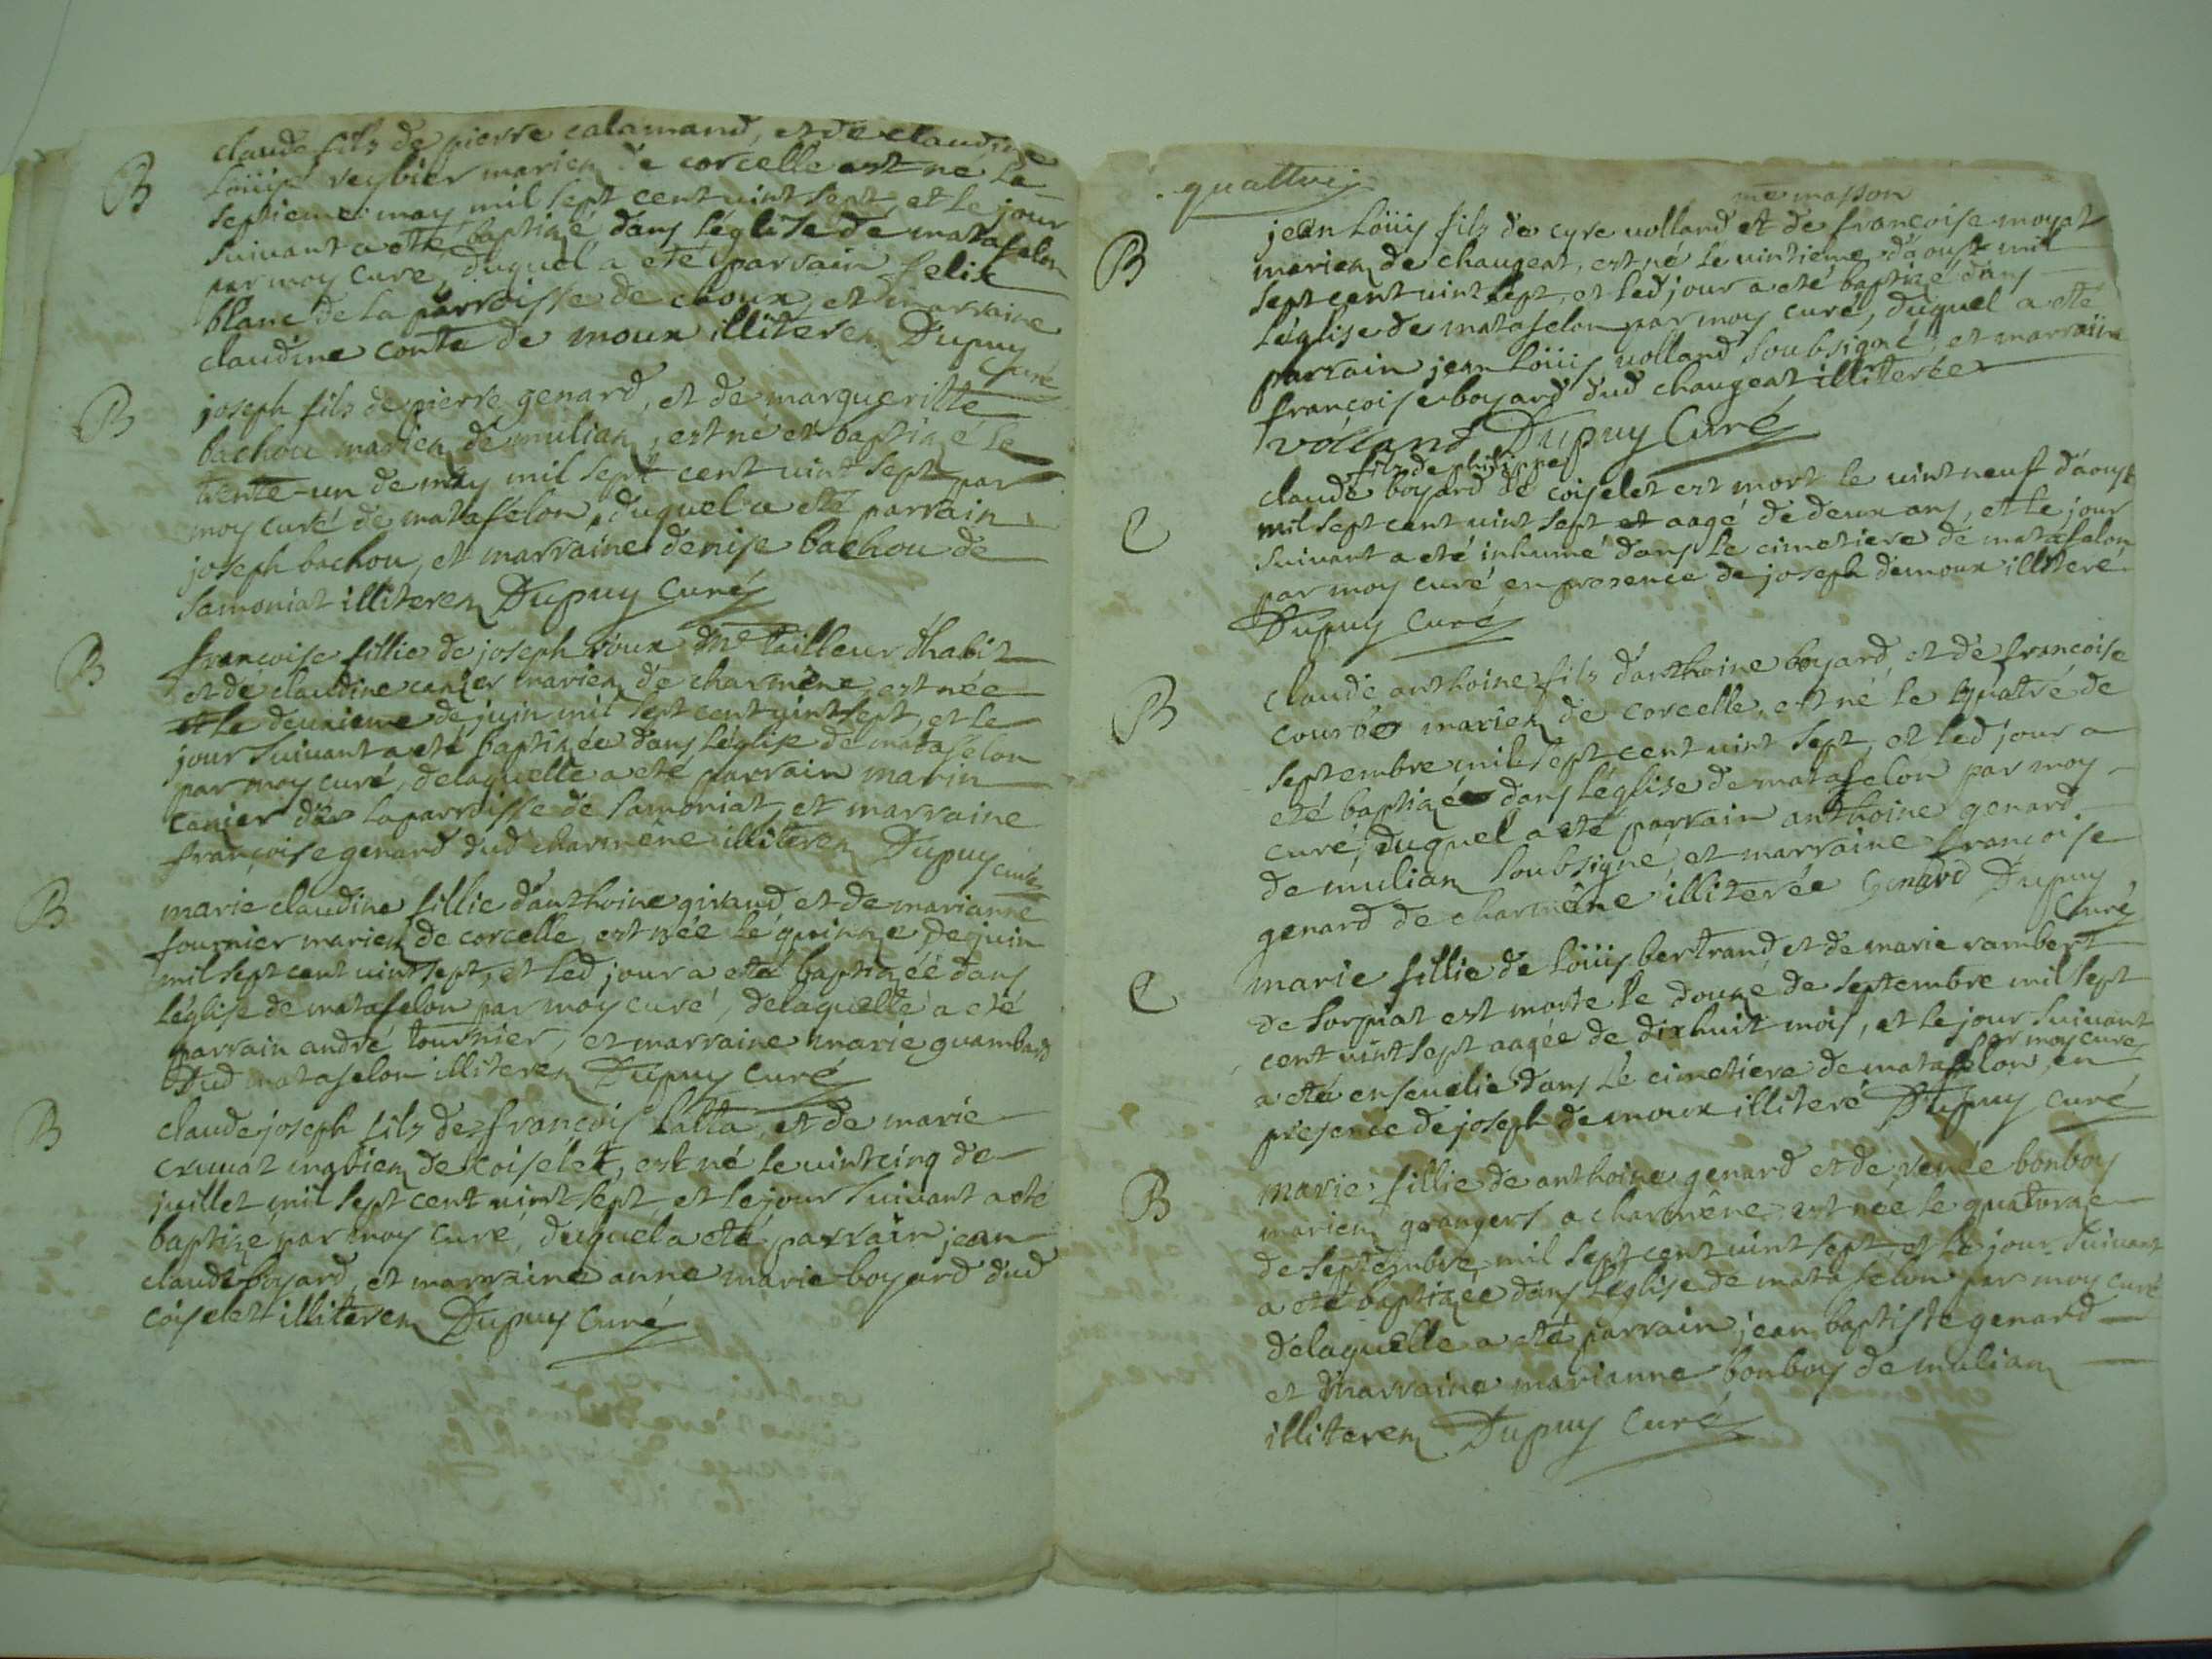 claude fils de pierre calamand, et de claudine
B
Loüise reybier mariez de corcelle est né le
septieme may mil sept cent vint sept, et le jour
suivant a eté baptizé dans l'église de matafelon
par moy curé, duquel a eté parrain felix
blanc de la parroisse de choux, et marraine
claudine conte de moux illiterez Dupuy
curé
B
joseph fils de pierre genard, et de margueritte
bachou mariez de mulian, est né et baptizé le
trente-un de may mil sept cent vint sept par
moy curé de matafelon, duquel a eté parrain
joseph bachou, et marraine denise bachou de
samoniat illiterez Dupuy curé
B
françoise fillie de joseph roux Me tailleur d'habit
et de claudine canier mariez de charmêne, est née
le deuxieme de juin mil sept cent vint sept, et le
jour suivant a eté baptizée dans l'église de matafelon
par moy curé, delaquelle a eté parrain marin
canier de la parroisse de samoniat, et marraine
françoise genard dud charmêne illiterez Dupuy curé
B
marie claudine fillie d'anthoine giraud et de marianne
fournier mariez de corcelle, est née le quinze de juin
mil sept cent vint sept, et led jour a eté baptizée dans
l'église de matafelon par moy curé, delaquelle a eté
parrain andré tournier, et marraine marie guambard
dud matafelon illiterez Dupuy curé
B
claude joseph fils de françois latta, et de marie
cruuat mariez de coiselet, est né le vint cinq de
juillet mil sept cent vint sept, et le jour suivant a eté
baptizé par moy curé, duquel a eté parrain jean
claude boyard, et marraine anne marie boyard dud
coiselet illiterez Dupuy curé
quattrej
me masson
B
jean Loüis fils de cyre volland et de francoise moyat
mariez de chaugeat, est né le vintieme d'aoust mil
sept cent vint sept, et led jour a eté baptizé dans
l'église de matafelon par moy curé, duquel a eté
parrain jean Loüis volland soubsigné, et marraine
francoise boyard dud chaugeat illiterée
volland Dupuy Curé
fils de philippe
C
claude boyard de coiselet est mort le vint neuf d'aoust
mil sept cent vint sept aagé de deux ans, et le jour
suivant a eté inhumé dans le cimetiere de matafelon
par moy curé en presence de joseph demoux illiteré
Dupuy curé
B
claude anthoine fils d'anthoine boyard, et de francoise
courbe mariez de corcelle, est né le quatre de
septembre mil sept cent vint sept, et led jour a
eté baptizé dans l'église de matafelon par moy
curé, duquel a eté parrain anthoine genard
de mulian soubsigné, et marraine francoise
genard de charmêne illiterée Genard Dupuy
curé
C
marie fillie de Loüis bertrand, et de marie rambert
de sorpiat est morte le douze de septembre mil sept
cent vint sept aagée de dixhuit mois, et le jour suivant
par moy curé
a eté ensevelie dans le cimetiere de matafelon, en
presence de joseph demoux illiteré Dupuy curé
B
marie fillie de anthoine genard et de renée bonboy
mariez grangers a charmêne est née le quatorze
de septembre mil sept cent vint sept, et le jour suivant
a eté baptizée dans l'église de matafelon par moy curé
delaquelle a eté parrain jean baptiste genard
et marraine marianne bonboy de mulian
illiterez Dupuy curé